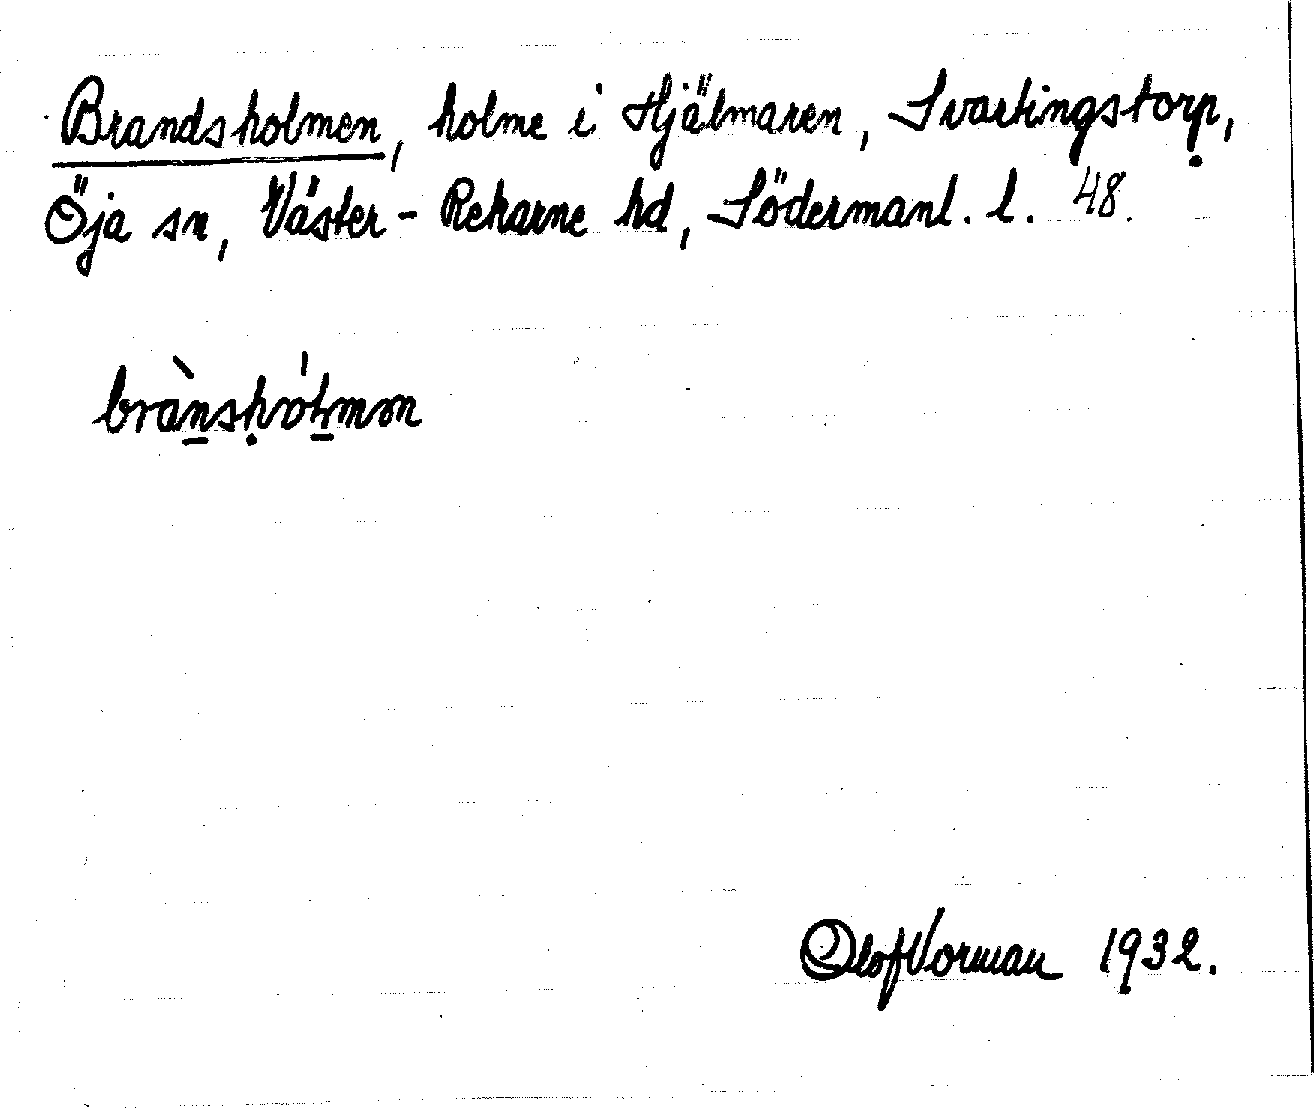 Brandsholmen, holme i Hjälmaren, Svartingstorp,
Öja sn, Väster-Rekarne hd, Södermanl. l. 48.
brànshólmæn
Olof Vorman 1932.